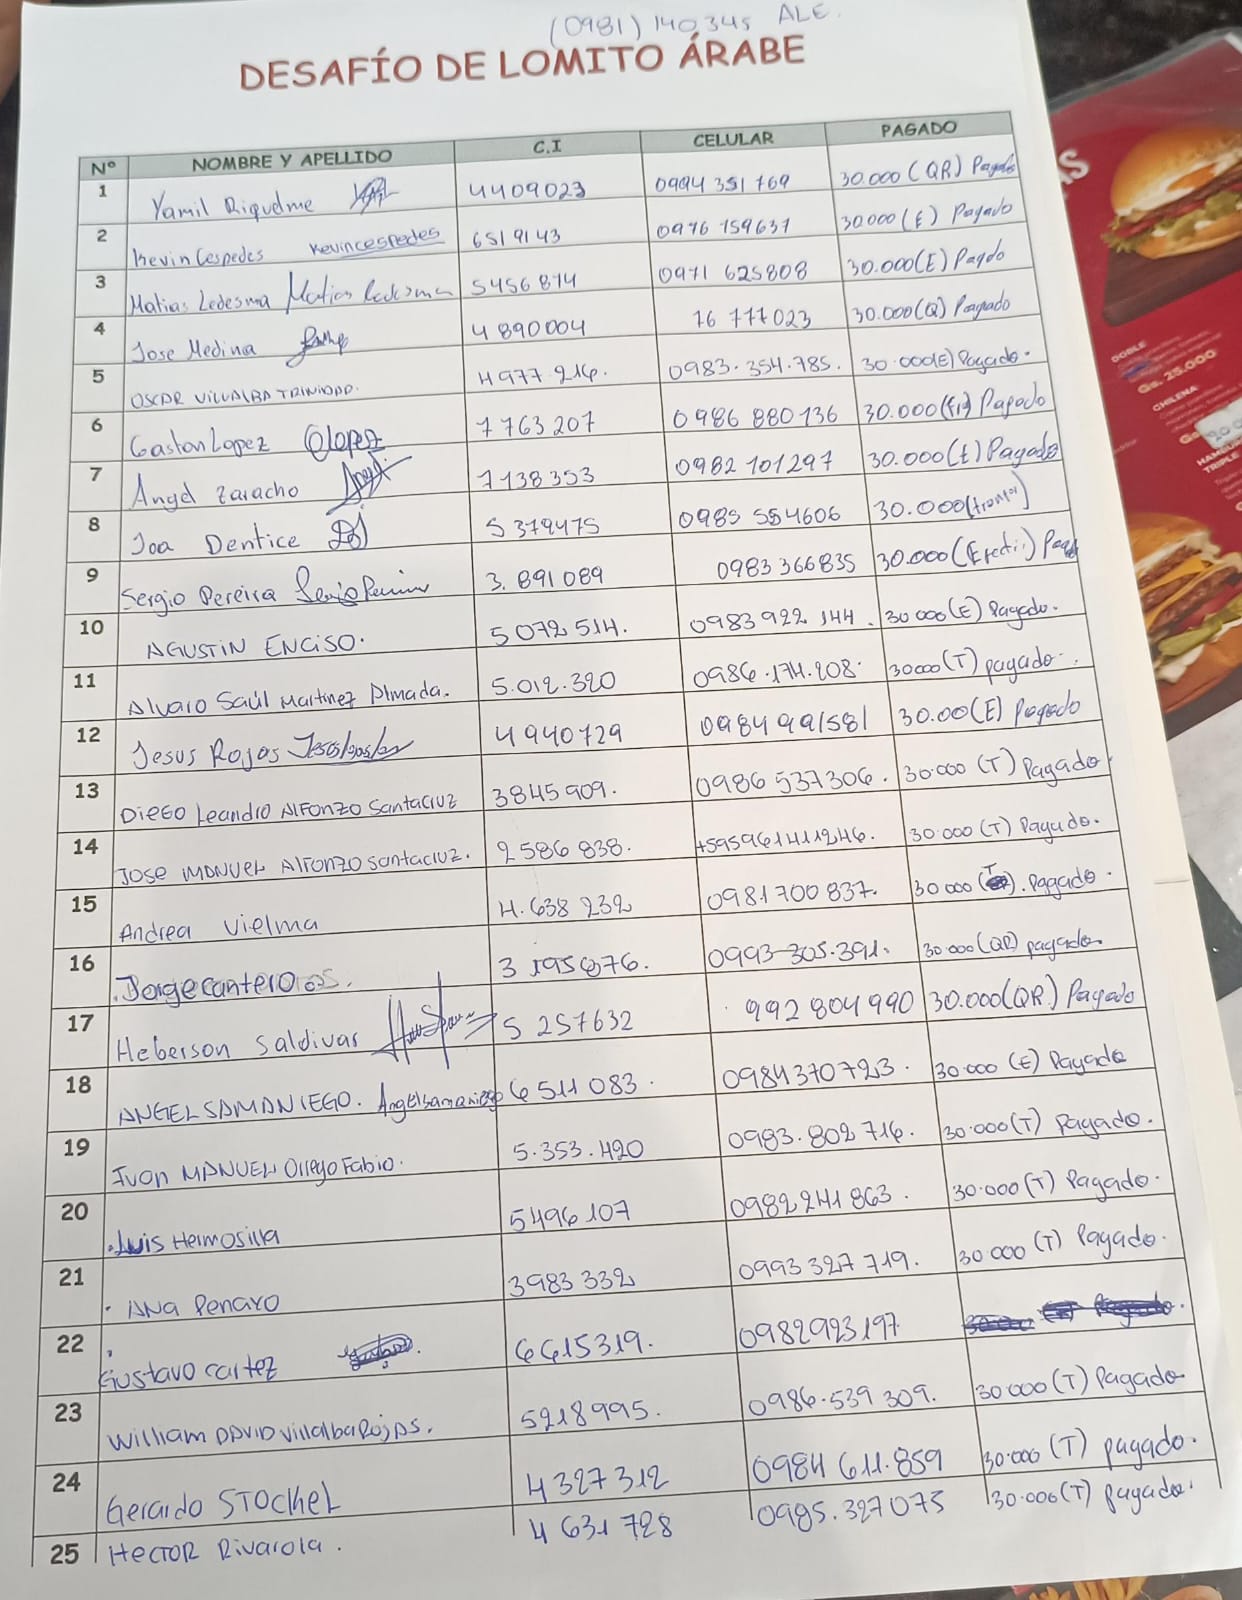 (0981) 140,345 ALE.
DESAFÍO DE LOMITO ÁRABE
Nº NOMBRE Y APELLIDO C.I CELULAR PAGADO
1 Yamil Riquelme 4409023 0994 351 769 30.000 (QR) Pagado
2 Kevin Cespedes Kevincespedes 6519143 0976 159637 30000 (E) Pagado
3 Matias Ledesma Matias Ledesma 5456874 0971 625808 30.000(E) Pagdo
4 Jose Medina 4890004 76 777023 30.000(Q) Pagado
5 OSCAR VILLALBA TRINIDAD. 4977.216. 0983.354.785. 30.000(E) Pagado.
6 Gaston Lopez Glopez 7763207 0986 880136 30.000 Pagado
7 Angel Zaracho 7138353 0982 101297 30.000(E) Pagado
8 Joa Dentice 5379475 0985 554606 30.000
9 Sergio Pereira Sergio Pereira 3.891089 0983366835 30.000
10 AGUSTIN ENCISO. 5072514. 0983922 144. 30000(E) Pagado.
11 Alvaro Saúl Martinez Almada. 5.012.320 0986.174.208. 30000(T) pagado.
12 Jesus Rojas 4940729 0984991581 30.00(E) Pagado
13 DIEGO Leandro AlFONZO Santacruz 3845909. 0986 537306. 30.000 (T) Pagado
14 JOSE MANUEL Alfonzo santacruz. 2586838. +595961411246. 30.000 (T) Pagado.
15 Andrea Vielma 4.638 232 0981700 837. 30000 (T). Pagado.
16 Jorge cantero 3195876. 0993-305.391. 30.000(QR) pagado
17 Heberson Saldivar 5 257632 992 804 990 30.000(QR) Pagado
18 ANGEL SAMANIEGO. Angelsamaniego 6511083. 0984370723. 30.000 (E) Pagado
19 Ivan MANUEL Orrego Fabio. 5.353.420 0983.802716. 30.000(T) Pagado.
20 Luis Hermosilla 5496107 0982241863. 30.000(T) Pagado.
21 ANA Penayo 3983332 0993327719. 30.000 (T) Pagado.
22 Gustavo cartez 6615319. 0982923197
23 William DAVID Villalba Rojas. 5218995. 0986.539 309. 30000 (T) Pagado
24 Gerardo STOCKEL 4327312 0984 611.859 30.000 (T) pagado.
25 HECTOR Rivarola. 4631728 0985.327075 30.000(T) pagado.
DOBLE
Gs. 25.000
CHILENA
TRIPLE